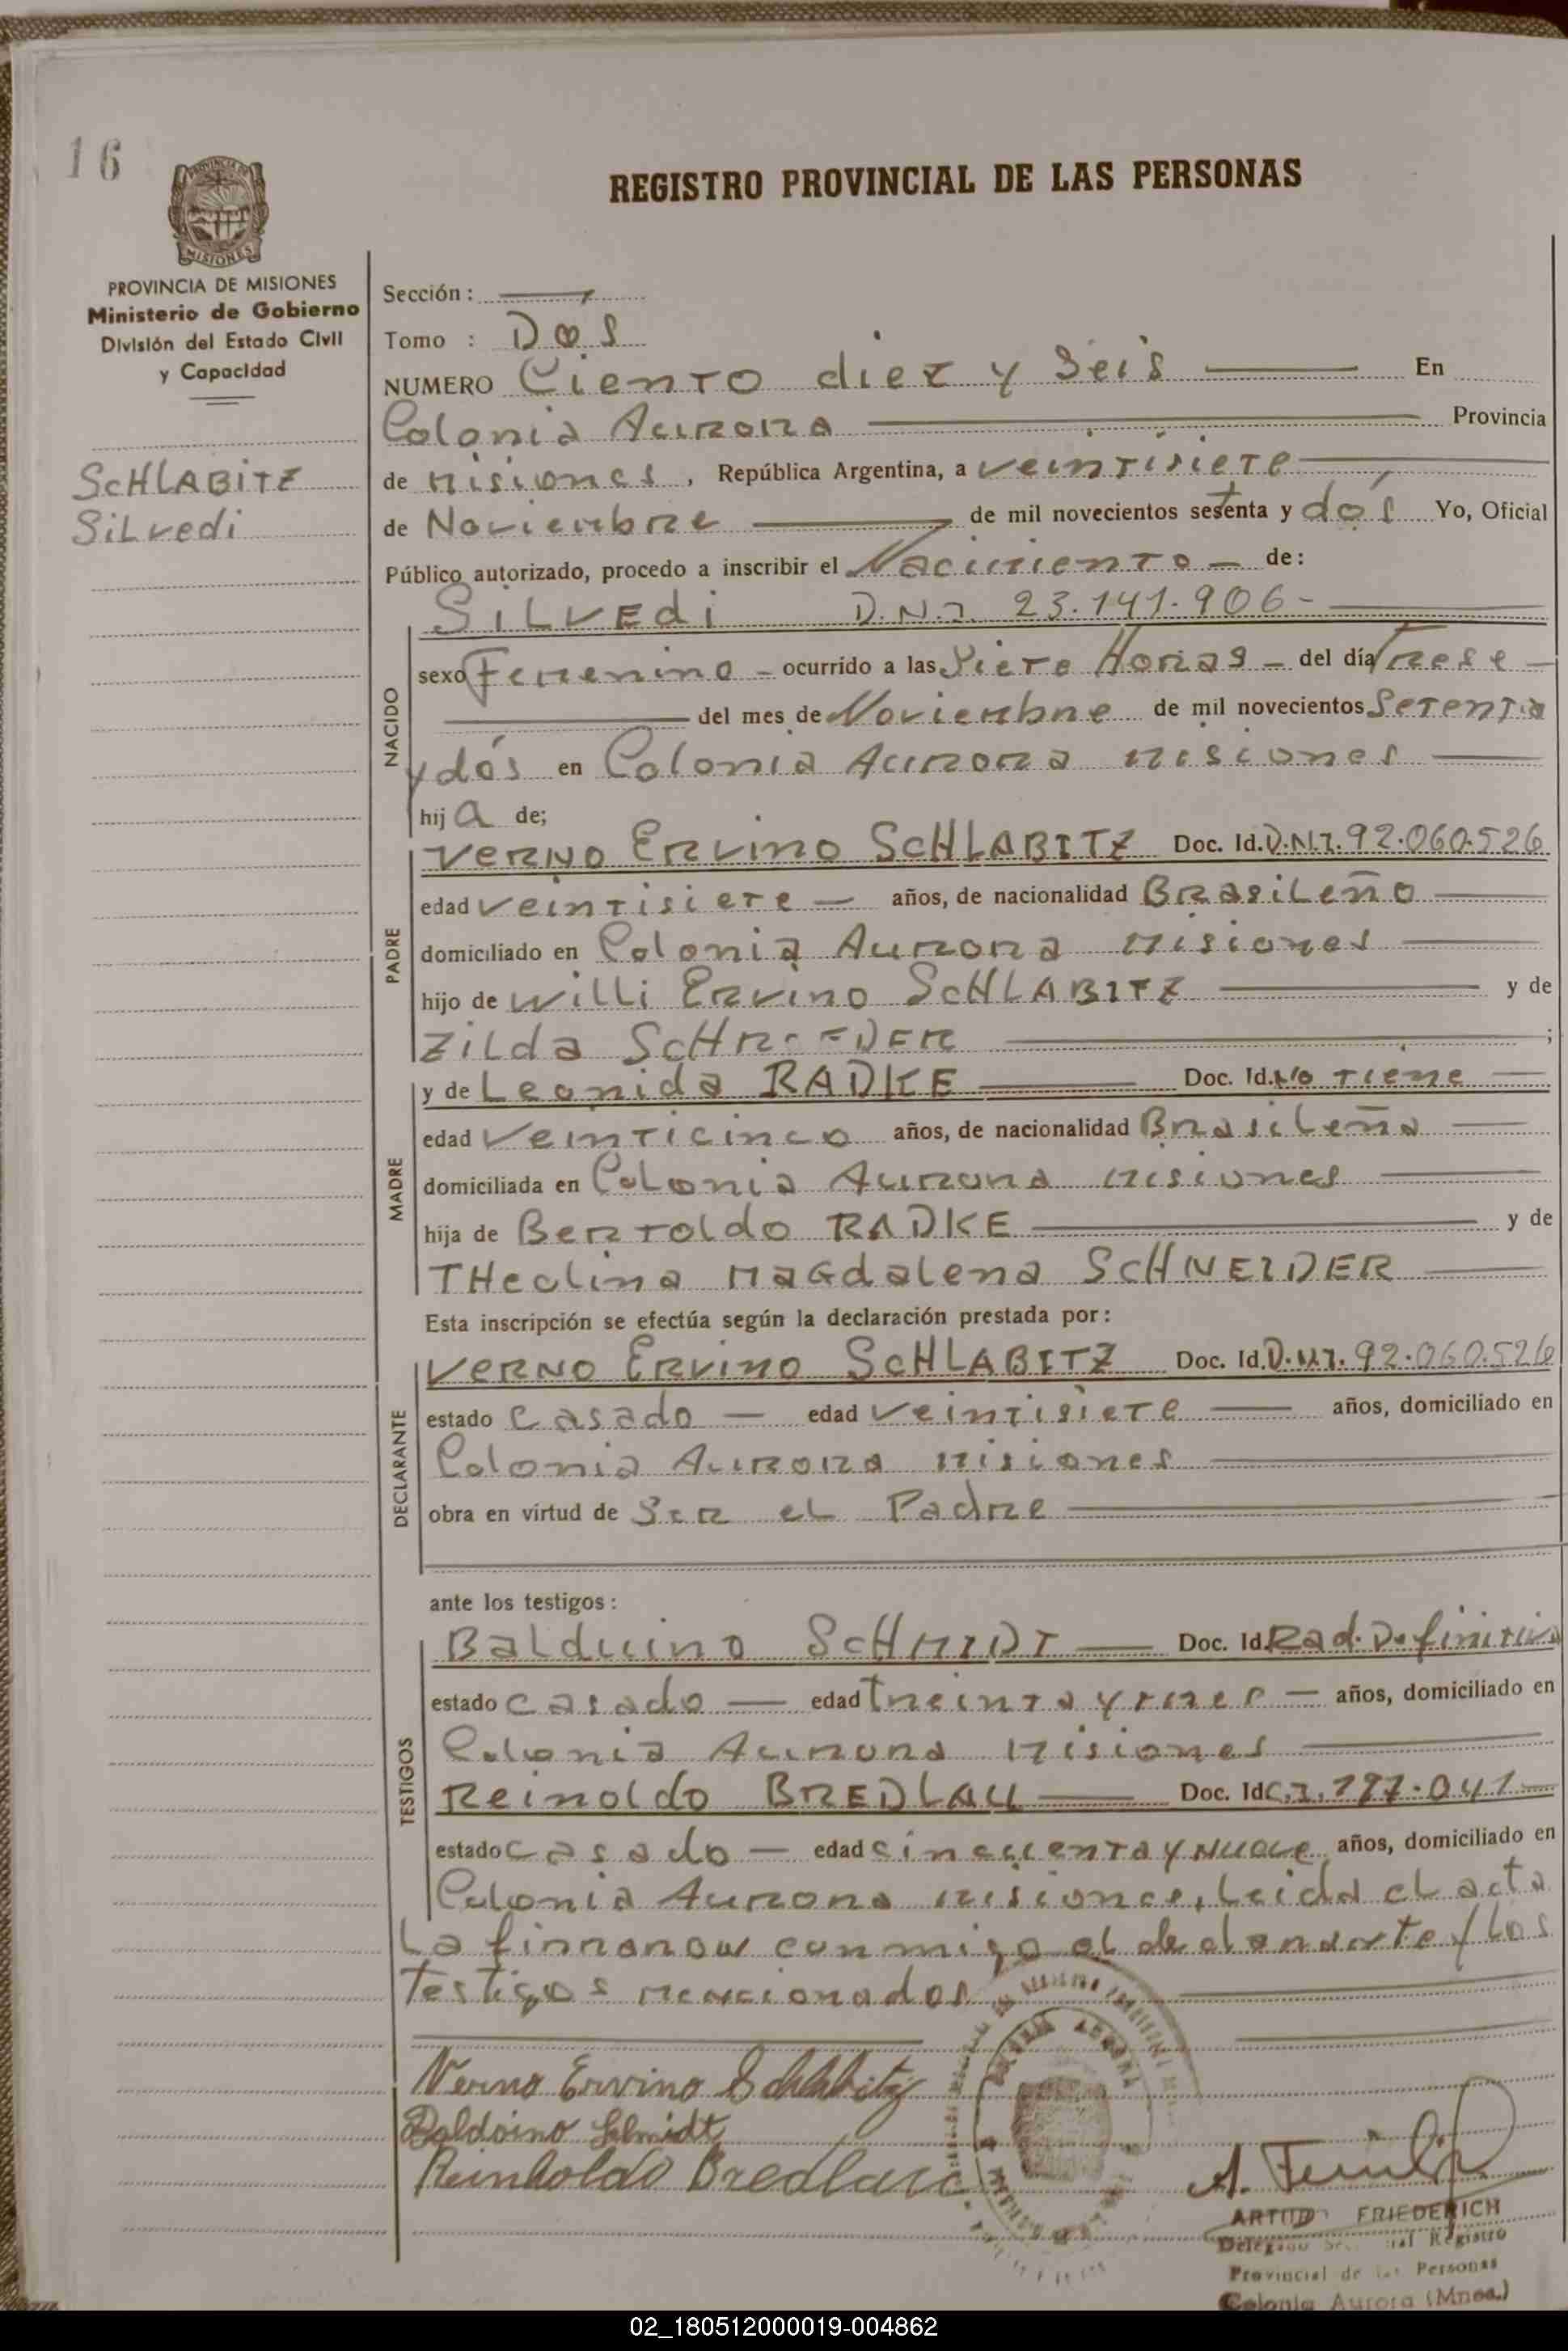 16
REGISTRO PROVINCIAL DE LAS PERSONAS
PROVINCIA DE MISIONES
Ministerio de Gobierno
División del Estado Civil
y Capacidad
SCHLABITZ
SiLvedi
Sección :
Tomo : Dós
NUMERO Ciento diez y Seis En
Colonia Aurora Provincia
de Misiones , República Argentina, a veintisiete
de Noviembre de mil novecientos setenta y dós Yo, Oficial
Público autorizado, procedo a inscribir el Nacimiento de:
SiLVEdi D.N.I. 23.141.906-
NACIDO
sexo Femenino - ocurrido a las Siete Horas - del día Trese
del mes de Noviembre de mil novecientos Setenta
y dós en Colonia Aurora Misiones
hij a de;
PADRE
VERNO ERvino SCHLABITZ Doc. Id. D.N.I. 92.060.526
edad veintisiete años, de nacionalidad BRasiLeño
domiciliado en Colonia Aurora Misiones
hijo de WiLLi ERvino SCHLABITZ y de
ZiLda SCHROEDER ;
MADRE
y de Leonida RADKE Doc. Id. No tiene
edad Veinticinco años, de nacionalidad Brasileña
domiciliada en Colonia Aurora Misiones
hija de Bertoldo RADKE y de
THeolina Magdalena SCHNEIDER
Esta inscripción se efectúa según la declaración prestada por:
DECLARANTE
VERNO ERvino SCHLABITZ Doc. Id. D.N.I. 92.060.526
estado casado edad veintisiete años, domiciliado en
Colonia Aurora Misiones
obra en virtud de Ser eL Padre
ante los testigos:
TESTIGOS
BaLduino SCHMIDT Doc. Id. Rad. Definitiva
estado casado edad treinta y tres años, domiciliado en
Colonia Aurora Misiones
ReinoLdo BREDLAU Doc. Id C.I. 197.041
estado casado edad cincuenta y Nueve años, domiciliado en
Colonia Aurora Misiones, Leida el acta
La firmaron conmigo el declarante y Los
testigos mencionados
Verno Ervino Schlabitz
Baldoino Schmidt
Reinholdo Bredlau
ARTURO FRIEDERICH
Registro
Provincial de las Personas
Colonia Aurora (Mnes.)
02_180512000019-004862